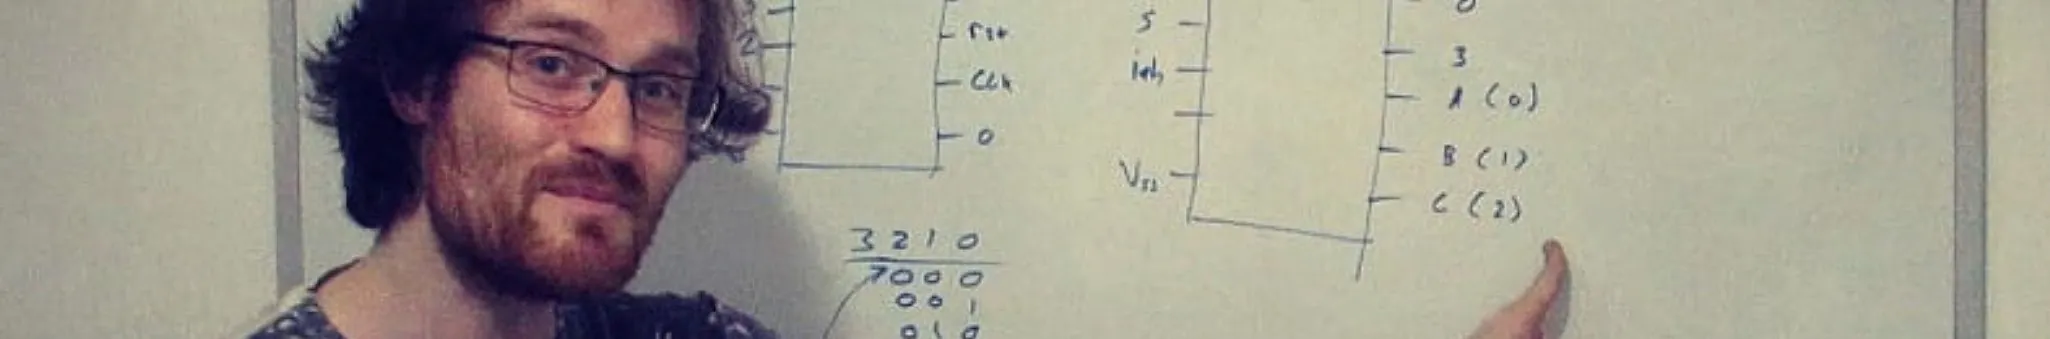 2
rst
CLK
0
5
inh
Vss
3
A (0)
B (1)
C (2)
3 2 1 0
0 0 0
0 0 1
0 1 0